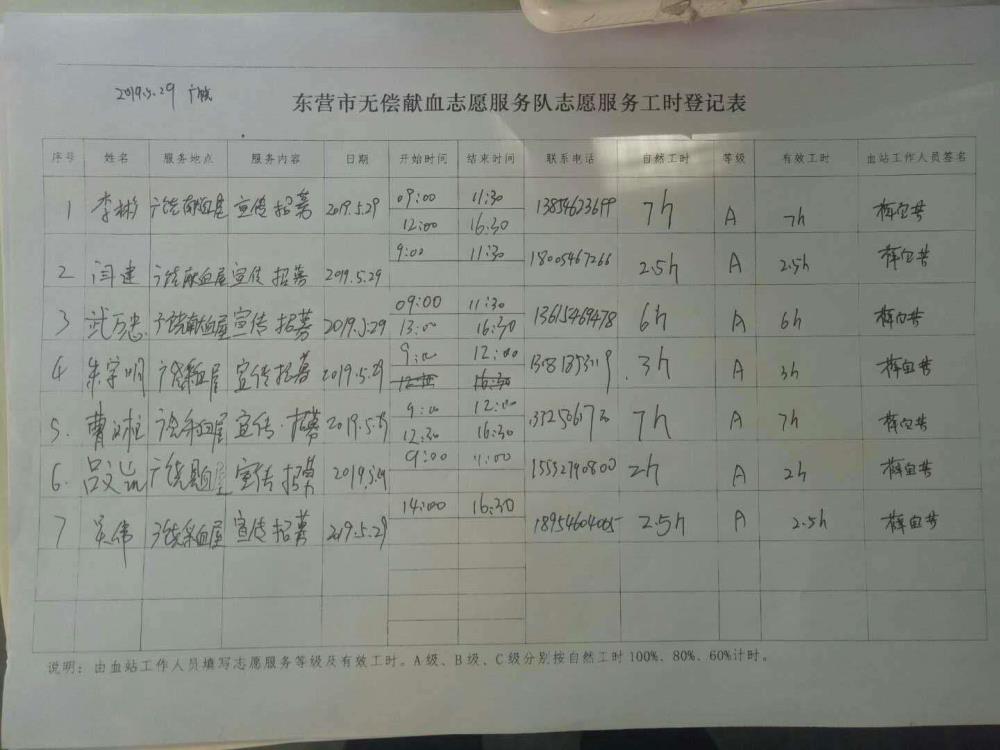 2019.5.29 广饶
东营市无偿献血志愿服务队志愿服务工时登记表
序号 姓名 服务地点 服务内容 日期 开始时间 结束时间 联系电话 自然工时 等级 有效工时 血站工作人员签名
1 李彬 广饶献血屋 宣传招募 2019.5.29 09:00 11:30 13854623699 7h A 7h
12:00 16:30
2 闫建 广饶献血屋 宣传招募 2019.5.29 9:00 11:30 18005467266 2.5h A 2.5h
3 武万忠 广饶献血屋 宣传招募 2019.5.29 09:00 11:30 13615469478 6h A 6h
13:00 16:30
4 朱学明 广饶采血屋 宣传招募 2019.5.29 9:00 12:00 3h A 3h
12:30 16:30
5. 曹 广饶采血屋 宣传·招募 2019.5.29 9:00 12:00 7h A 7h
12:30 16:30
6. 吕文 广饶 血屋 宣传招募 2019.5.29 9:00 11:00 15552790800 2h A 2h
7 吴伟 广饶采血屋 宣传招募 2019.5.29 14:00 16:30 18954604005 2.5h A 2.5h
说明：由血站工作人员填写志愿服务等级及有效工时。A级、B级、C级分别按自然工时100%、80%、60%计时。